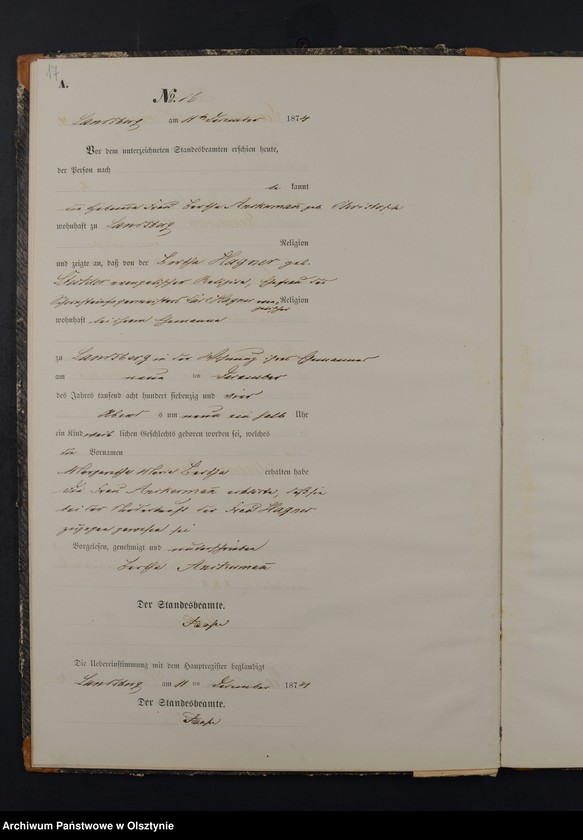 17
A.
No. 16
Landsberg am 11ten December 1874
Vor dem unterzeichneten Standesbeamten erschien heute,
der Person nach
be kannt
Frau Bertha Ankermann geb.
wohnhaft zu Landsberg
Religion
und zeigte an, daß von der Bertha Hagner geb.
evangelischer Religion, Ehefrau des
Schornsteinfegermeisters Carl Hagner evangelischer Religion
wohnhaft bei ihrem Ehemanne
zu Landsberg in der Wohnung ihres Ehemannes
am neun ten December
des Jahres tausend acht hundert siebenzig und vier
Abend s um neun ein halb Uhr
ein Kind weib lichen Geschlechts geboren worden sei, welches
die Vornamen
Margarethe Marie Bertha erhalten habe
Die Frau Ankermann erklärte, daß sie
bei der Niederkunft der Frau Hagner
zugegen gewesen sei
Vorgelesen, genehmigt und unterschrieben
Bertha Ankermann
Der Standesbeamte.
Die Uebereinstimmung mit dem Hauptregister beglaubigt
Landsberg am 11 ten December 1874
Der Standesbeamte.
Archiwum Państwowe w Olsztynie